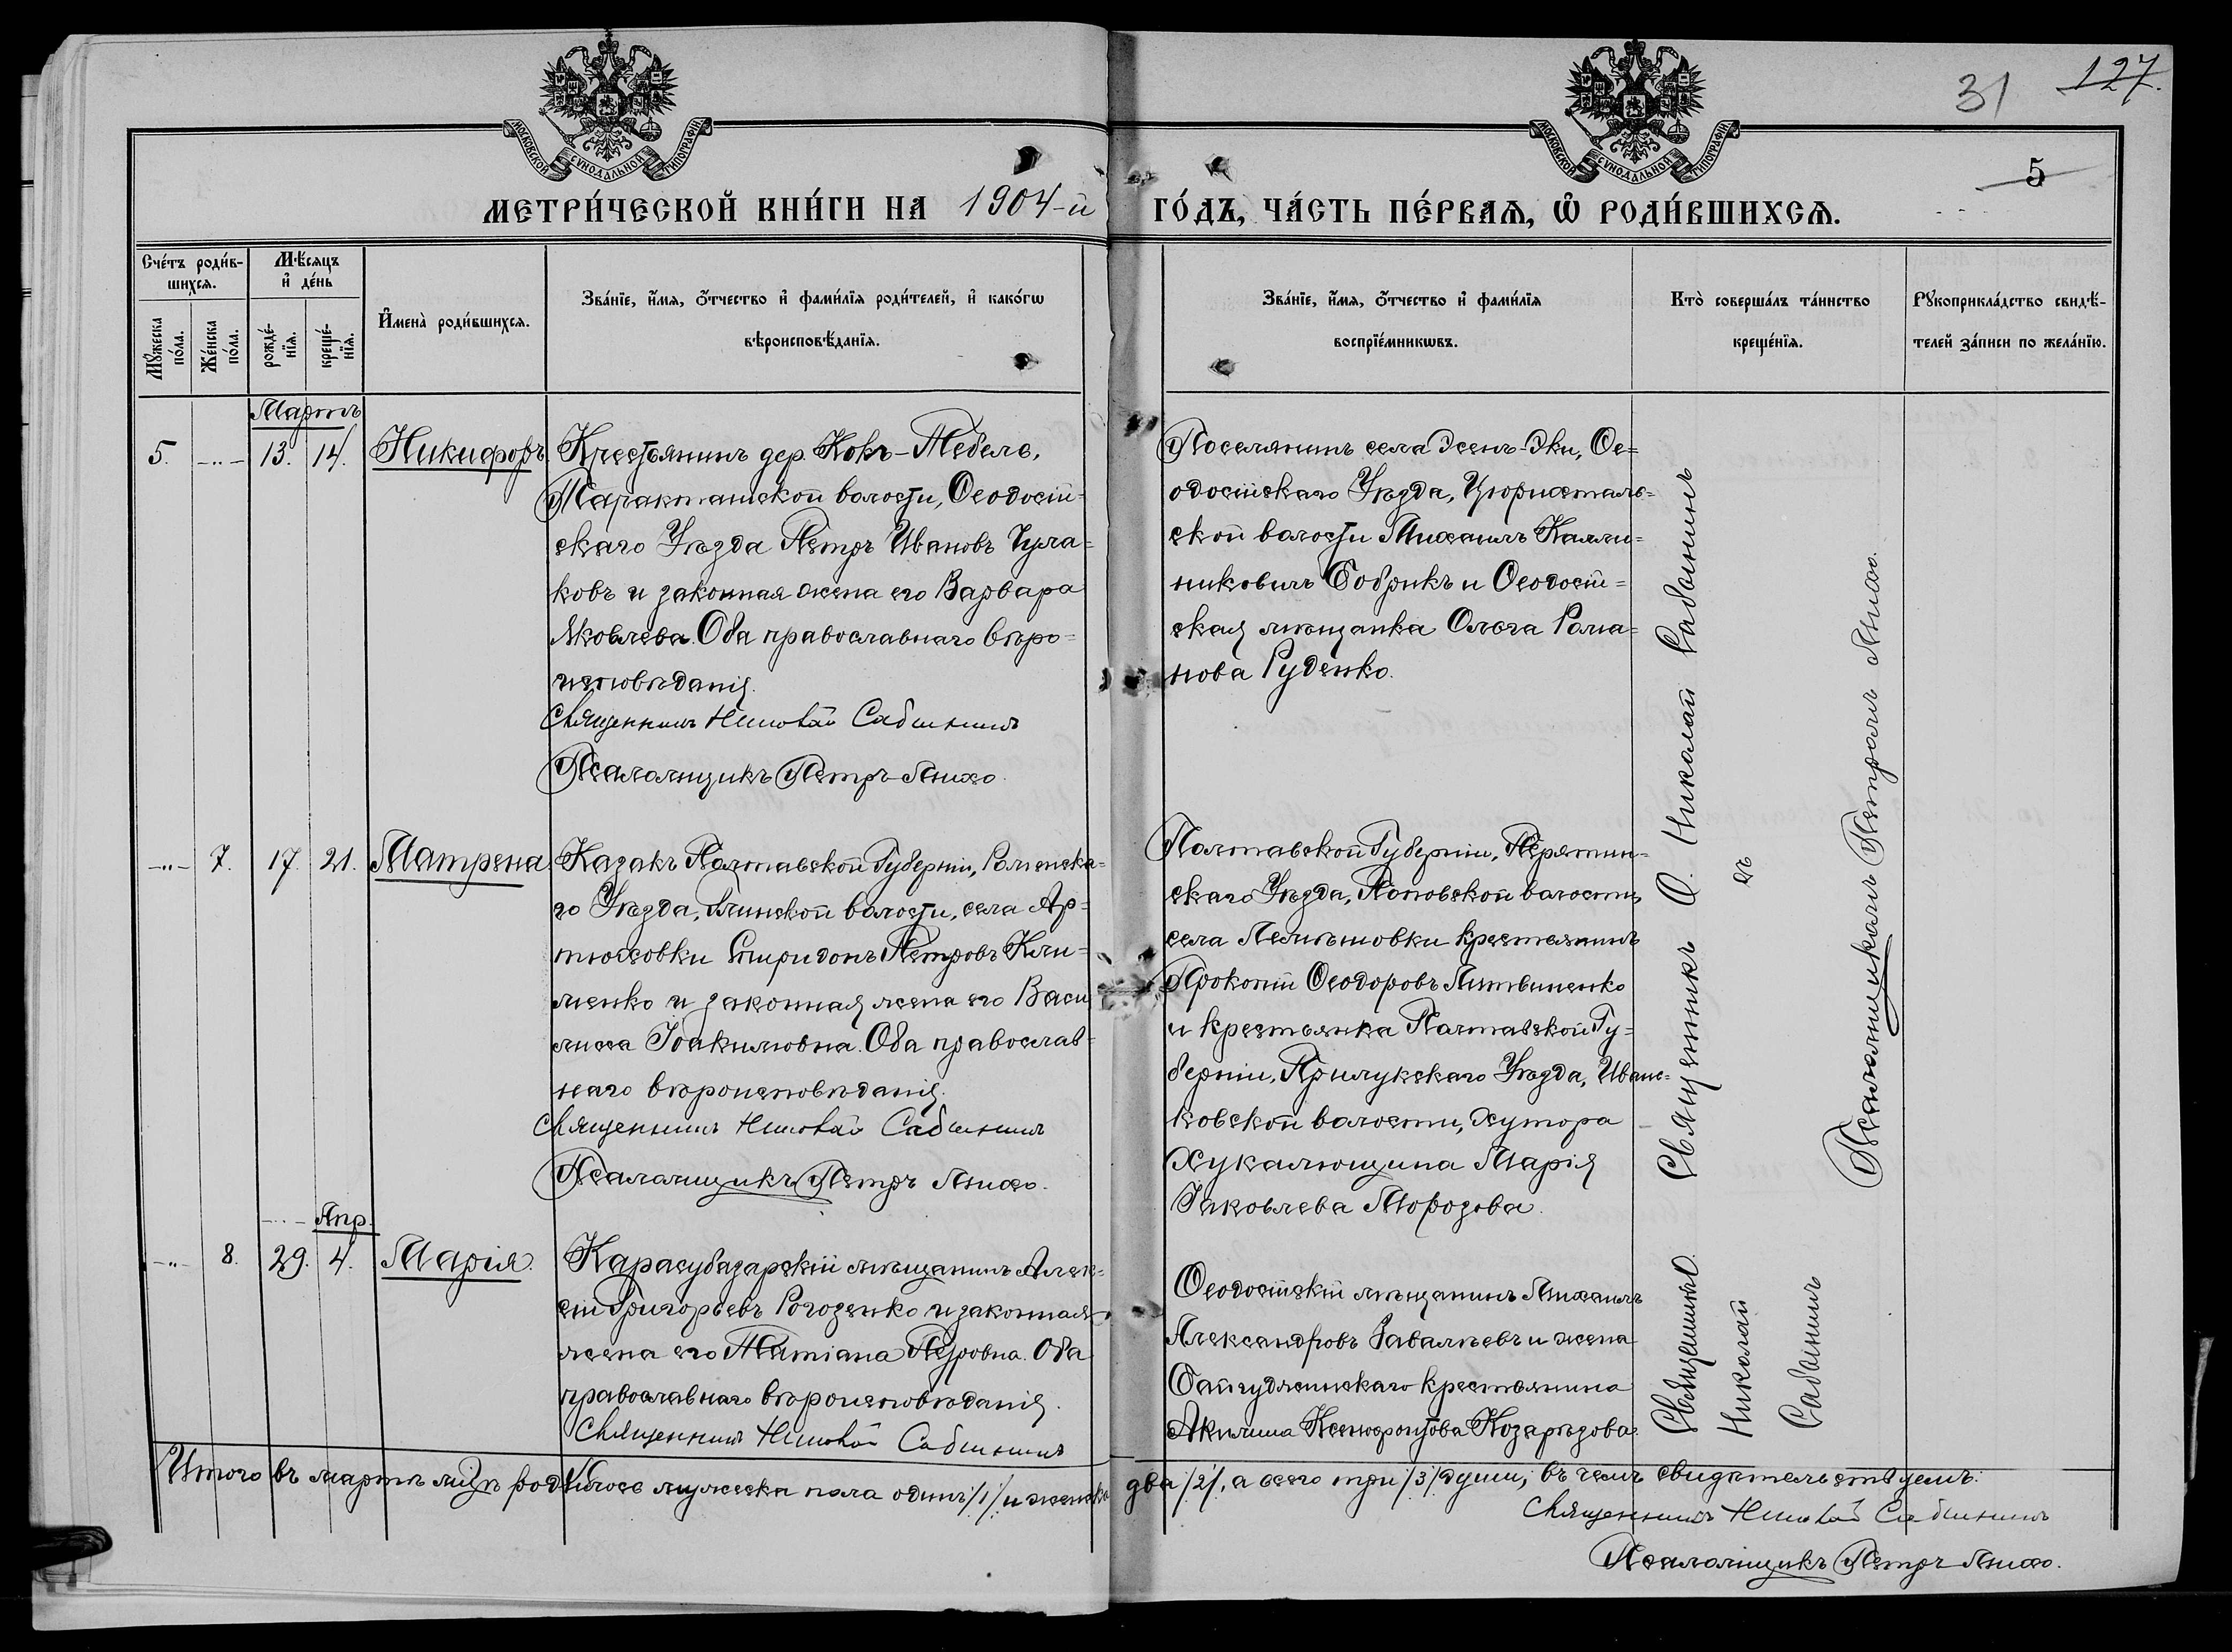 31 127.
МОСКОВСКОЙ СУНОДАЛЬНОЙ ТИПОГРАФІИ
МОСКОВСКОЙ СУНОДАЛЬНОЙ ТИПОГРАФІИ
5
МЕТРИ́ЧЕСКОЙ КНИ́ГИ НА 1904-й ГО́ДЪ, ЧА́СТЬ ПЕ́РВАЯ, Ѡ РОДИ́ВШИХСЯ.
Сче́тъ роди́в-
шихся.
Мꙋжеска по́ла.
Же́нска по́ла.
Мѣ́сяцъ и де́нь
рожде́-
нїя.
креще́-
нїя.
Имена̀ роди́вшихся.
Зва́нїе, и́мя, о́тчество и фами́лїя роди́телей, и како́гѡ
вѣроисповѣ́данїя.
Зва́нїе, и́мя, о́тчество и фами́лїя
воспрїе́мникѡвъ.
Кто̀ соверша́лъ та́инство
креще́нїя.
Рꙋкоприкла́дство свидѣ́-
телей за́писи по жела́нїю.
Мартъ
5. -"- 13. 14. Никифоръ.
Крестьянинъ дер. Кокъ-Тебель,
Таракташской волости, Ѳеодосій=
скаго Уѣзда Петръ Ивановъ Чула=
ковъ и законная жена его Варвара
Яковлева. Оба православнаго вѣро=
исповѣданія.
Священникъ Николай Сабининъ
Псаломщикъ Петръ Лихо.
Поселянинъ села Эсенъ-Эки, Ѳе=
одосійскаго Уѣзда, Цюрихталь=
ской волости Михаилъ Калли=
никовичъ Бобрикъ и Ѳеодосій=
ская мѣщанка Ольга Рома=
нова Руденко.
-"- 7. 17. 21. Матрена
Казакъ Полтавской Губерніи, Роменска=
го Уѣзда, Глинской волости, села Ар=
тюховки Спиридонъ Петровъ Кли=
менко и законная жена его Васи
лисса Іоакимовна. Оба православ=
наго вѣроисповѣданія.
Священникъ Николай Сабининъ
Псаломщикъ Петръ Лихо.
Полтавской Губерніи, Пирятин=
скаго Уѣзда, Поповской волости
села Лемешовки крестьянинъ
Прокопій Ѳеодоровъ Литвиненко
и крестьянка Полтавской Гу=
берніи, Прилукскаго Уѣзда, Иване=
ковской волости, хутора
Жукалющина Марія
Іаковлева Морозова.
Священникъ О. Николай Сабининъ
съ
Псаломщикомъ Петромъ Лихо.
-"- Апр.
-"- 8. 29. 4. Марія.
Карасубазарскій мѣщанинъ Алек=
сій Григорьевъ Рогозенко и законная
жена его Татіана Петровна. Оба
православнаго вѣроисповѣданія.
Священникъ Николай Сабининъ
Ѳеодосійскій мѣщанинъ Михаилъ
Александровъ Заваліевъ и жена
Байгуджинскаго крестьянина
Акилина Ксенофонтова Козарѣзова.
Священникъ
Николай
Сабининъ
Итого въ мартѣ м-цѣ родилось мужеска пола одинъ /1/ и женска два /2/, а всего три /3/ души; въ чемъ свидѣтельствуемъ:
Священникъ Николай Сабининъ
Псаломщикъ Петръ Лихо.